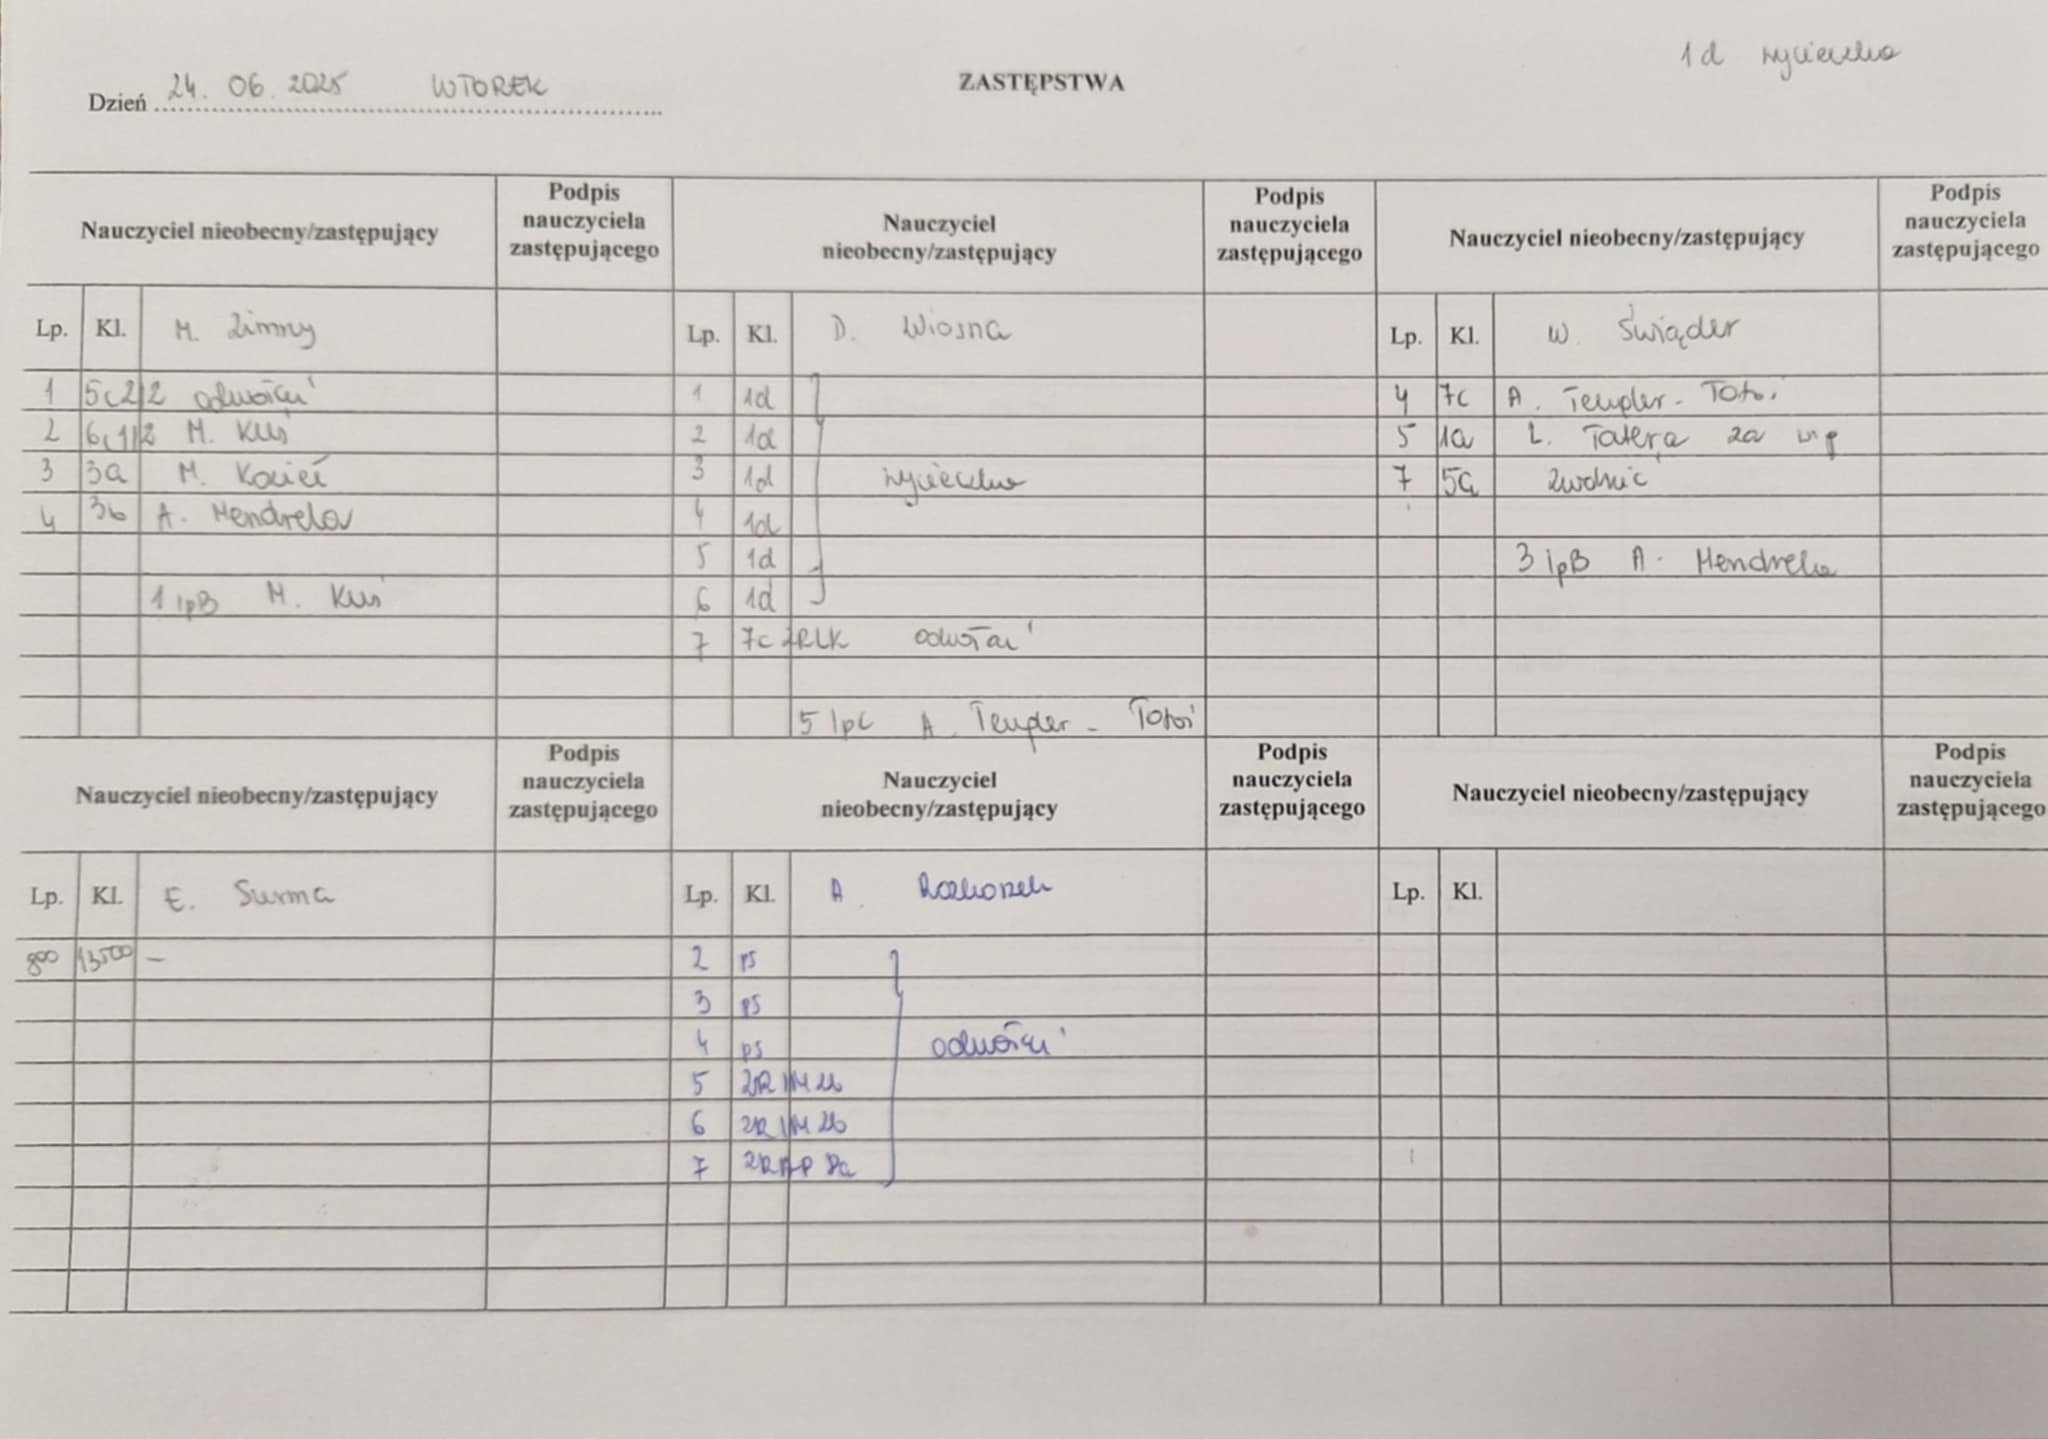 1d wycieczka
Dzień 24. 06. 2025 WTOREK
ZASTĘPSTWA
Nauczyciel nieobecny/zastępujący
Podpis nauczyciela zastępującego
Nauczyciel nieobecny/zastępujący
Podpis nauczyciela zastępującego
Nauczyciel nieobecny/zastępujący
Podpis nauczyciela zastępującego
Lp. Kl. M. Zimny
1 5c2/2 odwołać
2 6c1/2 M. Kuś
3 3a M. Kocieł
4 3b A. Mendrela
1 ipB M. Kuś
Lp. Kl. D. Wiosna
1 1d
2 1d
3 1d wycieczka
4 1d
5 1d
6 1d
7 7c ZRLK odwołać
5 ipC A. Templer - Totoś
Lp. Kl. W. Świąder
4 7c A. Templer - Totoś
5 1a L. Tatera za
7 5a zwolnić
3 ipB A. Mendrela
Nauczyciel nieobecny/zastępujący
Podpis nauczyciela zastępującego
Nauczyciel nieobecny/zastępujący
Podpis nauczyciela zastępującego
Nauczyciel nieobecny/zastępujący
Podpis nauczyciela zastępującego
Lp. Kl. E. Surma
800 –
Lp. Kl. A.
2 ps
3 ps
4 ps odwołać
5
6
7
Lp. Kl.